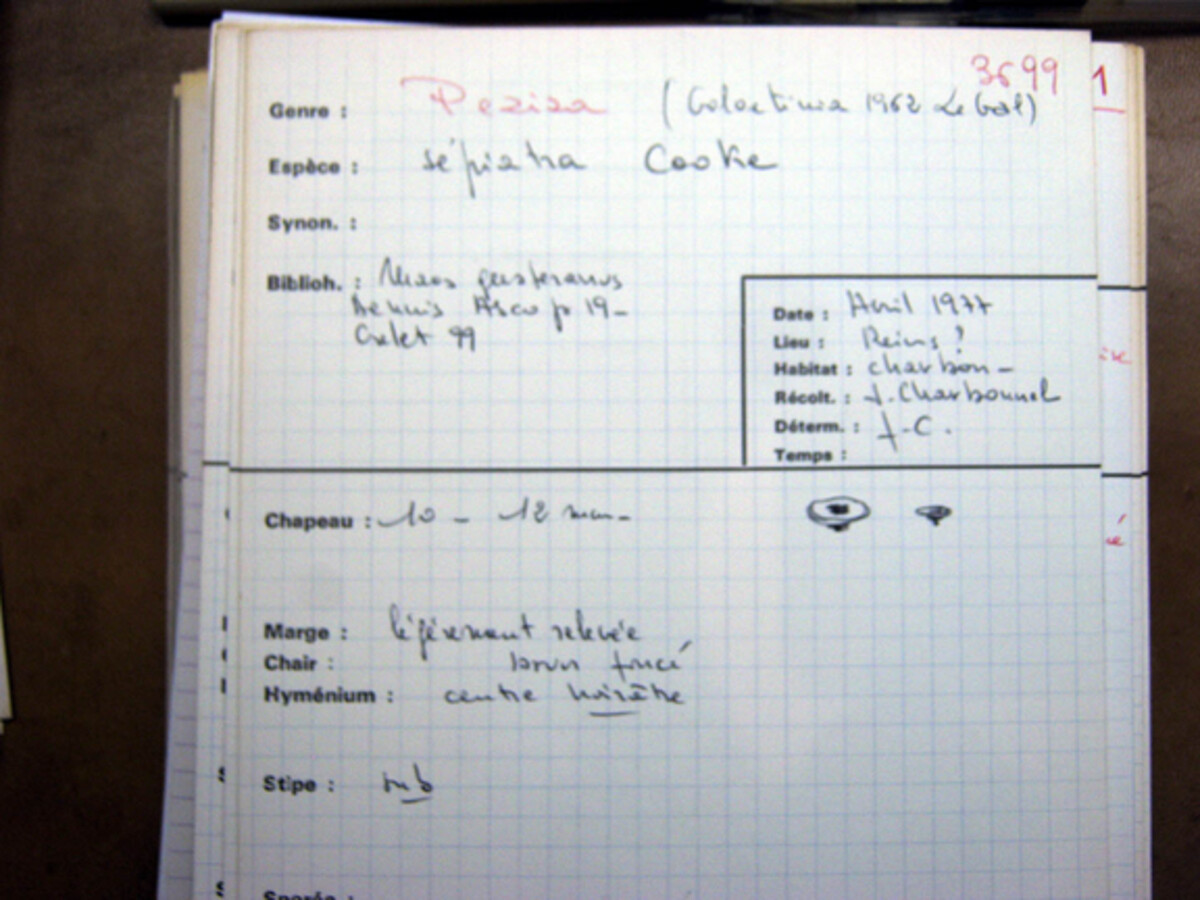 3699
Genre : Peziza (Galactinia 1962 Le Gal)
Espèce : sépiatra Cooke
Synon. :
Biblioh. :
Dennis Asco p 19-
Grelet 99
Date : Avril 1977
Lieu : Reims ?
Habitat : charbon -
Récolt. : J. Charbonnel
Déterm. : J-C.
Temps :
Chapeau : 10 - 12 mm -
Marge : légèrement relevée
Chair : brun foncé
Hyménium : centre noirâtre
Stipe :
Sporée :
1